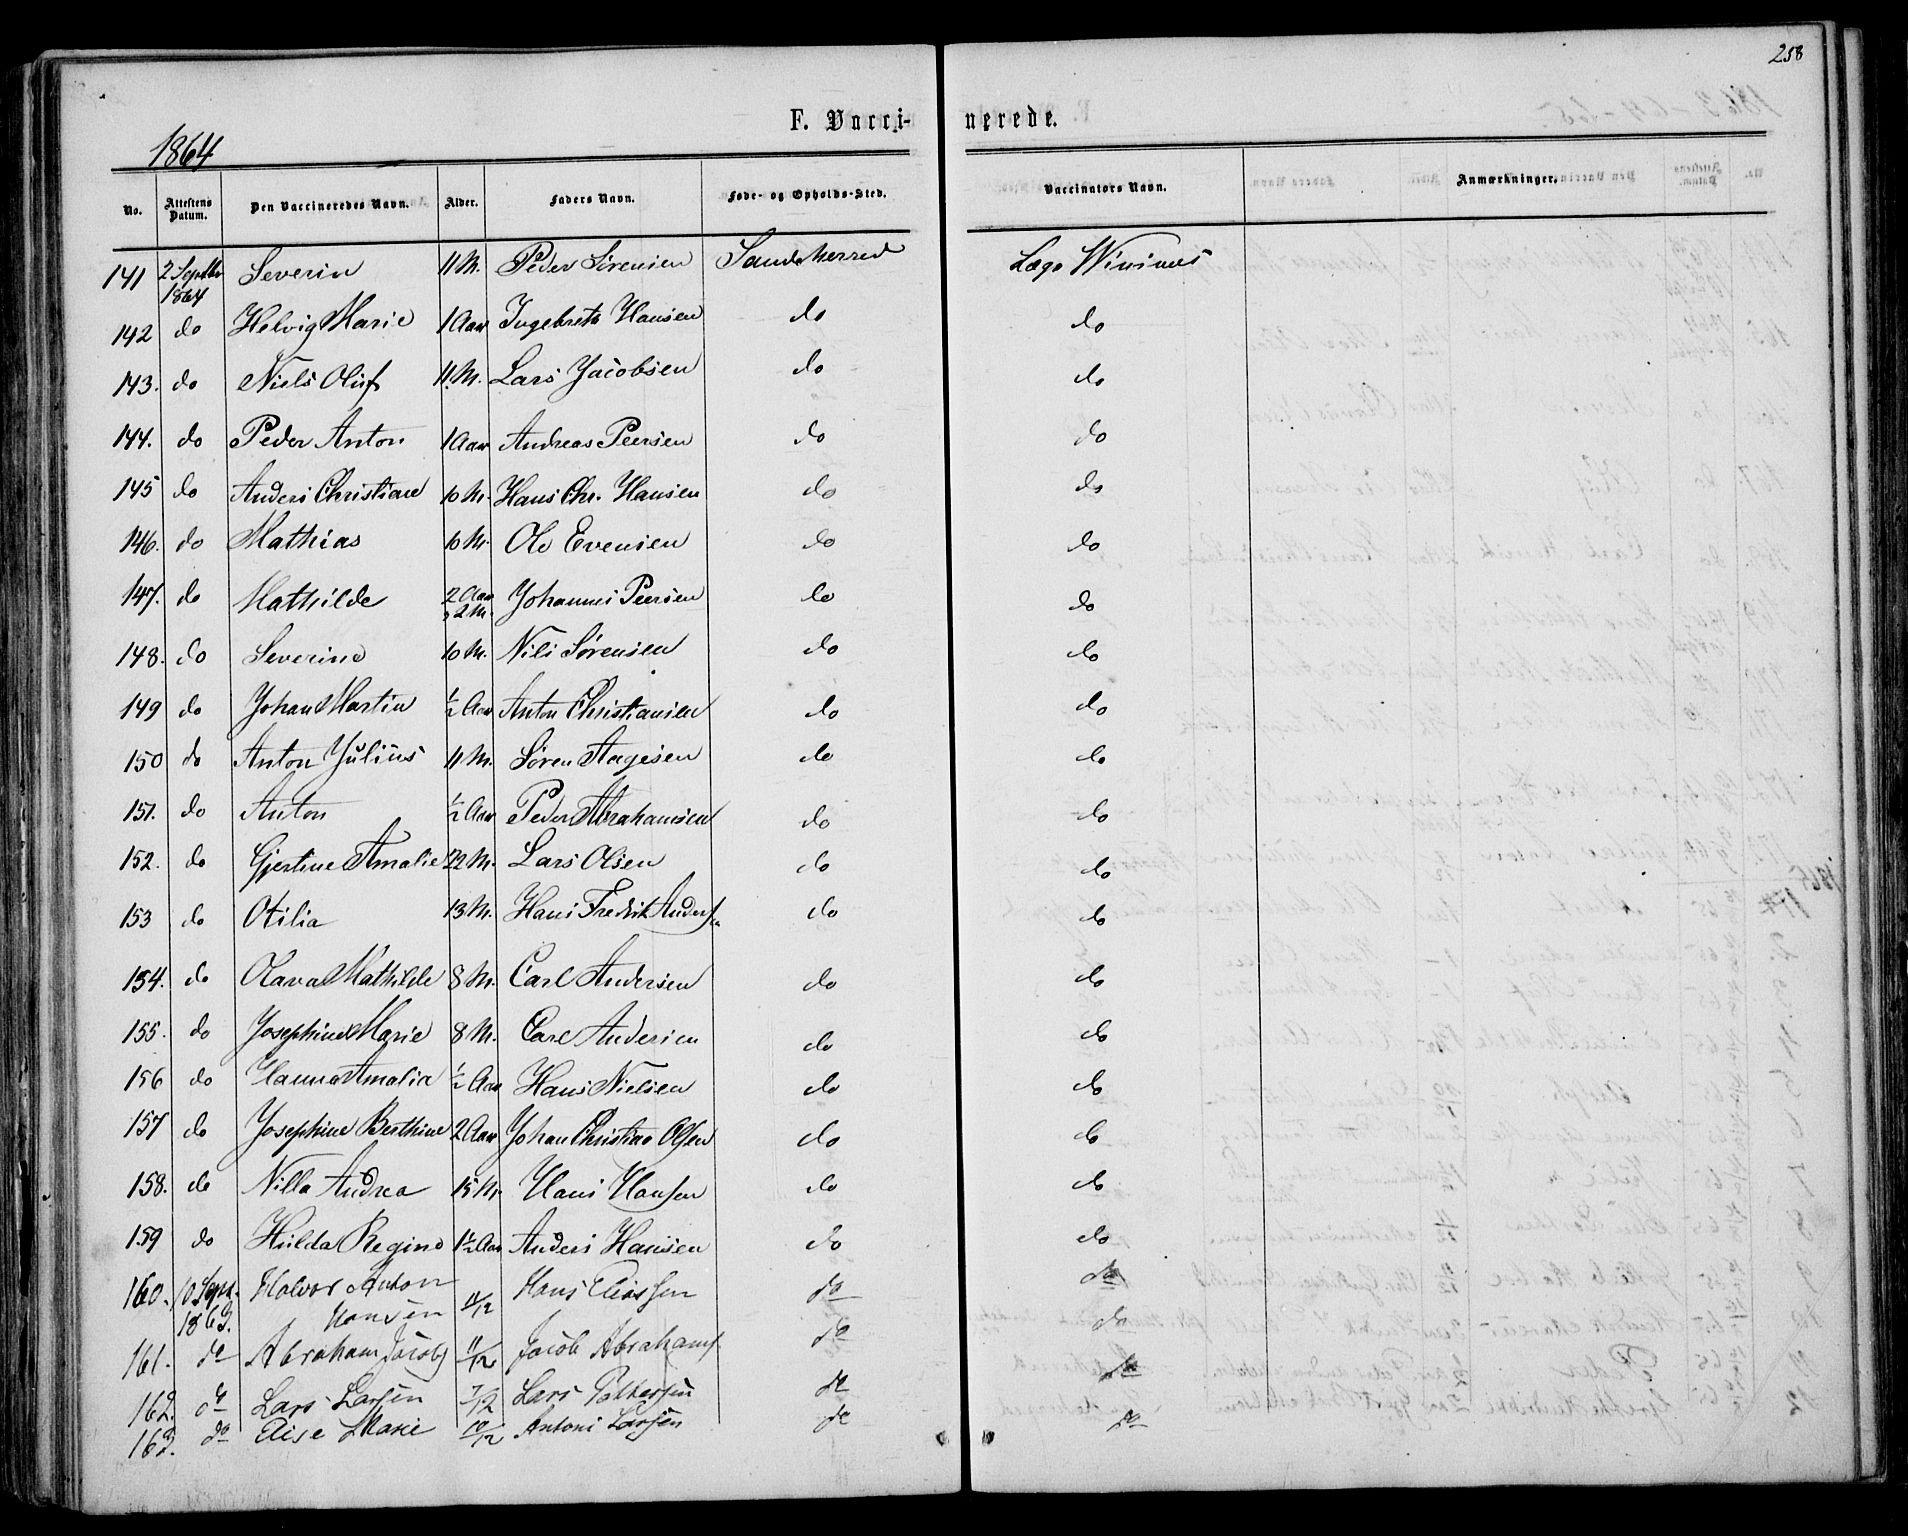 258
F. Vacci- nerede.
1864
No. Attestens Datum. Den Vaccineredes Navn. Alder. Faders Navn. Føde- og Opholds-Sted. Vaccinators Navn. Anmærkninger.
141 2 Septbr 1864 Severin 11 M. Peder Sörensen Sandeherred Læge
142 do Helvig Marie 1 Aar Ingebreth Hansen do do
143. do Niels Oluf 11 M. Lars Jacobsen do do
144. do Peder Anton 1 Aar Andreas Peersen do do
145 do Anders Christian 10 M. Hans Chr. Hansen do do
146. do Mathias 10 M. Ole Evensen do do
147. do Mathilde 2 Aar 2 M. Johannes Peersen do do
148. do Severine 10 M. Nils Sørensen do do
149 do Johan Martin 1/2 Aar Anton Christiansen do do
150 do Anton Julius 11 M. Sören Aagesen do do
151. do Anton 1/2 Aar Peder Abrahamsen do do
152. do Gjertine Amalie 22 M. Lars Olsen do do
153 do Otilia 13 M. Hans Fredrik Andersen do do
154. do Olava Mathilde 8 M. Carl Andersen do do
155. do Josephine Marie 8 M. Carl Andersen do do
156 do Hanna Amalia 1/2 Aar Hans Nielsen do do
157 do Josephine Berthine 2 Aar Johan Christian Olsen do do
158. do Nilla Andrea 15 M. Hans Hansen do do
159 do Hilda Regine 1 1/2 Aar Anders Hansen do do
160. 10 Sept. 1863. Halvor Anton Hansen 11/12 Hans Eliassen do do
161. do Abraham Jacobs 11/12 Jacob Abrahams. do do
162. do Lars Larsen 7/12 Lars Pettersen do do
163. do Elise Marie 10/12 Antoni Larsen do do